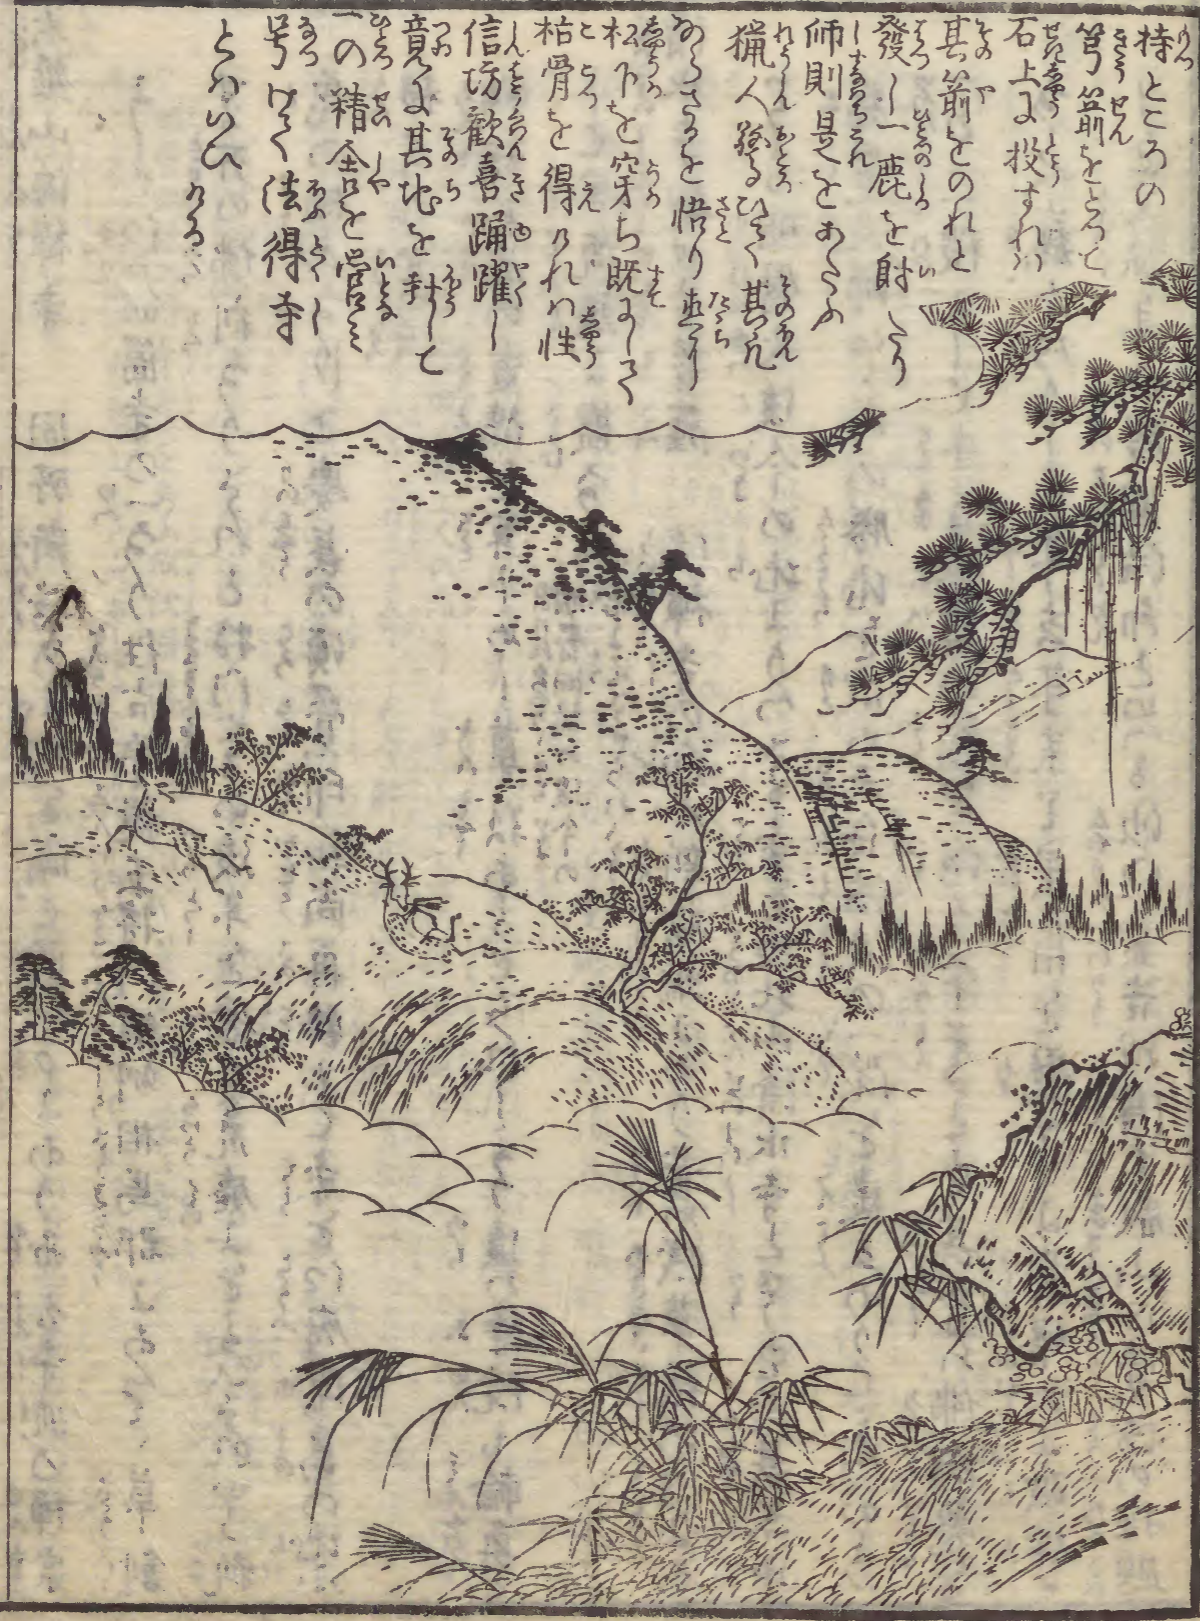 持ところの
弓箭をとつて
石上に投すれハ
其箭をのれと
發し一鹿を射たり
師則是をあたふ
猟人發るひて其凡
ならさるを悟り直に
松下を穿ち既にして
枯骨を得けれハ性
信坊歓喜踊躍し
竟に其地を封して
一の精舎を営ミ
号けて法得寺
とハいひ
ける